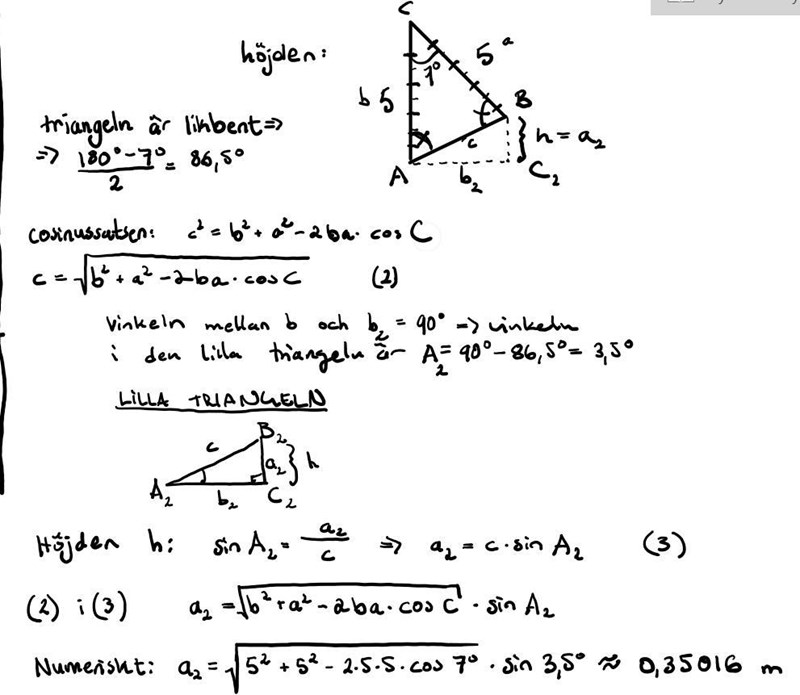 höjden:
C
5 a
7°
b 5
B
c
h = a₂
A
b₂
C₂
triangeln är likbent ⇒
⇒ (180° - 7°)/2 = 86,5°
cosinussatsen: c² = b² + a² - 2ba · cos C
c = √(b² + a² - 2ba · cos C) (2)
vinkeln mellan b och b₂ = 90° → vinkeln
i den lilla triangeln är A₂ = 90° - 86,5° = 3,5°
LILLA TRIANGELN
B₂
c
a₂
h
A₂
b₂
C₂
Höjden h: sin A₂ = a₂/c ⇒ a₂ = c · sin A₂ (3)
(2) i (3) a₂ = √(b² + a² - 2ba · cos C) · sin A₂
Numeriskt: a₂ = √(5² + 5² - 2·5·5 · cos 7°) · sin 3,5° ≈ 0,35016 m